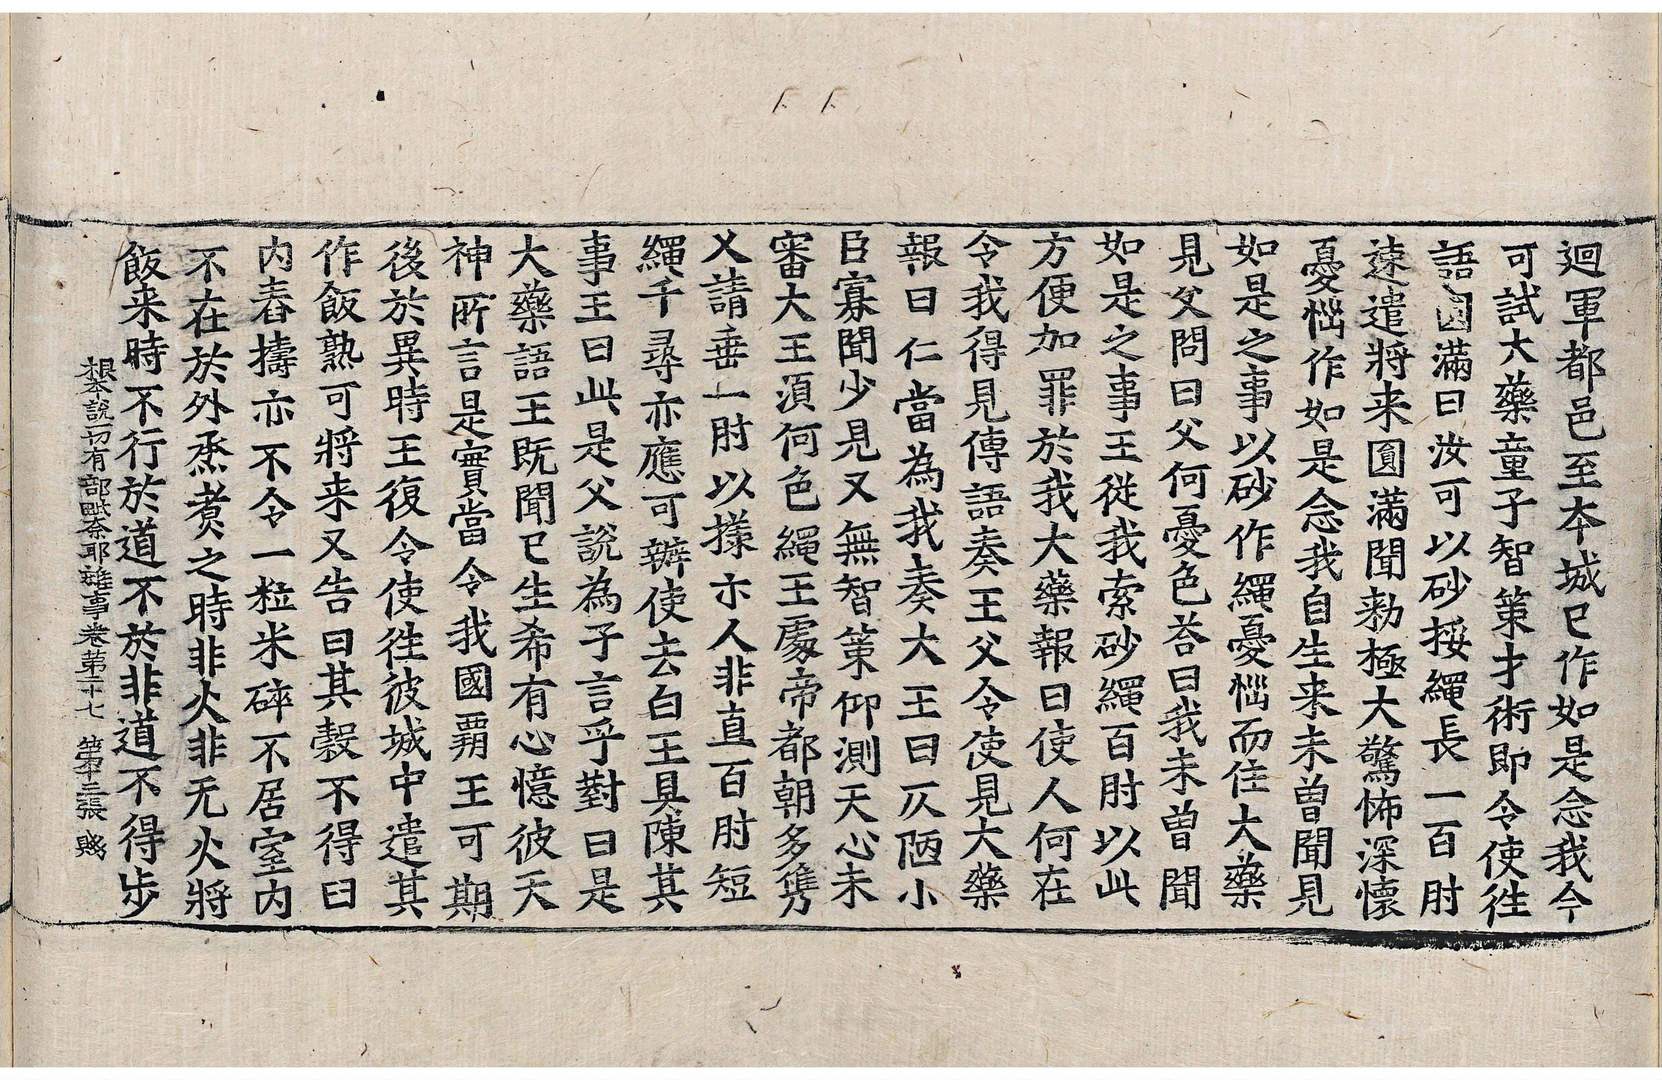 迴軍都邑至本城已作如是念我今
可試大藥童子智策才術即令使往
語圓滿曰汝可以砂挼繩長一百肘
速遣將来圓滿聞勑極大驚怖深懷
憂惱作如是念我自生来未曾聞見
如是之事以砂作繩憂惱而住大藥
見父問曰父何憂色荅曰我未曾聞
如是之事王從我索砂繩百肘以此
方便加罪於我大藥報曰使人何在
令我得見傳語奏王父令使見大藥
報曰仁當為我奏大王曰仄陋小
臣寡聞少見又無智策仰測天心未
審大王須何色繩王處帝都朝多雋
乂請垂一肘以㨾示人非直百肘短
繩千尋亦應可辦使去白王具陳其
事王曰此是父說為子言乎對曰是
大藥語王既聞已生希有心憶彼天
神所言是實當令我國覇王可期
後於異時王復令使往彼城中遣其
作飯熟可將来又告曰其穀不得臼
内舂擣亦不令一粒米碎不居室内
不在於外烝煑之時非火非无火將
飯来時不行於道不於非道不得步
根本說一切有部毗奈耶雜事卷第二十七 第十二張 賤